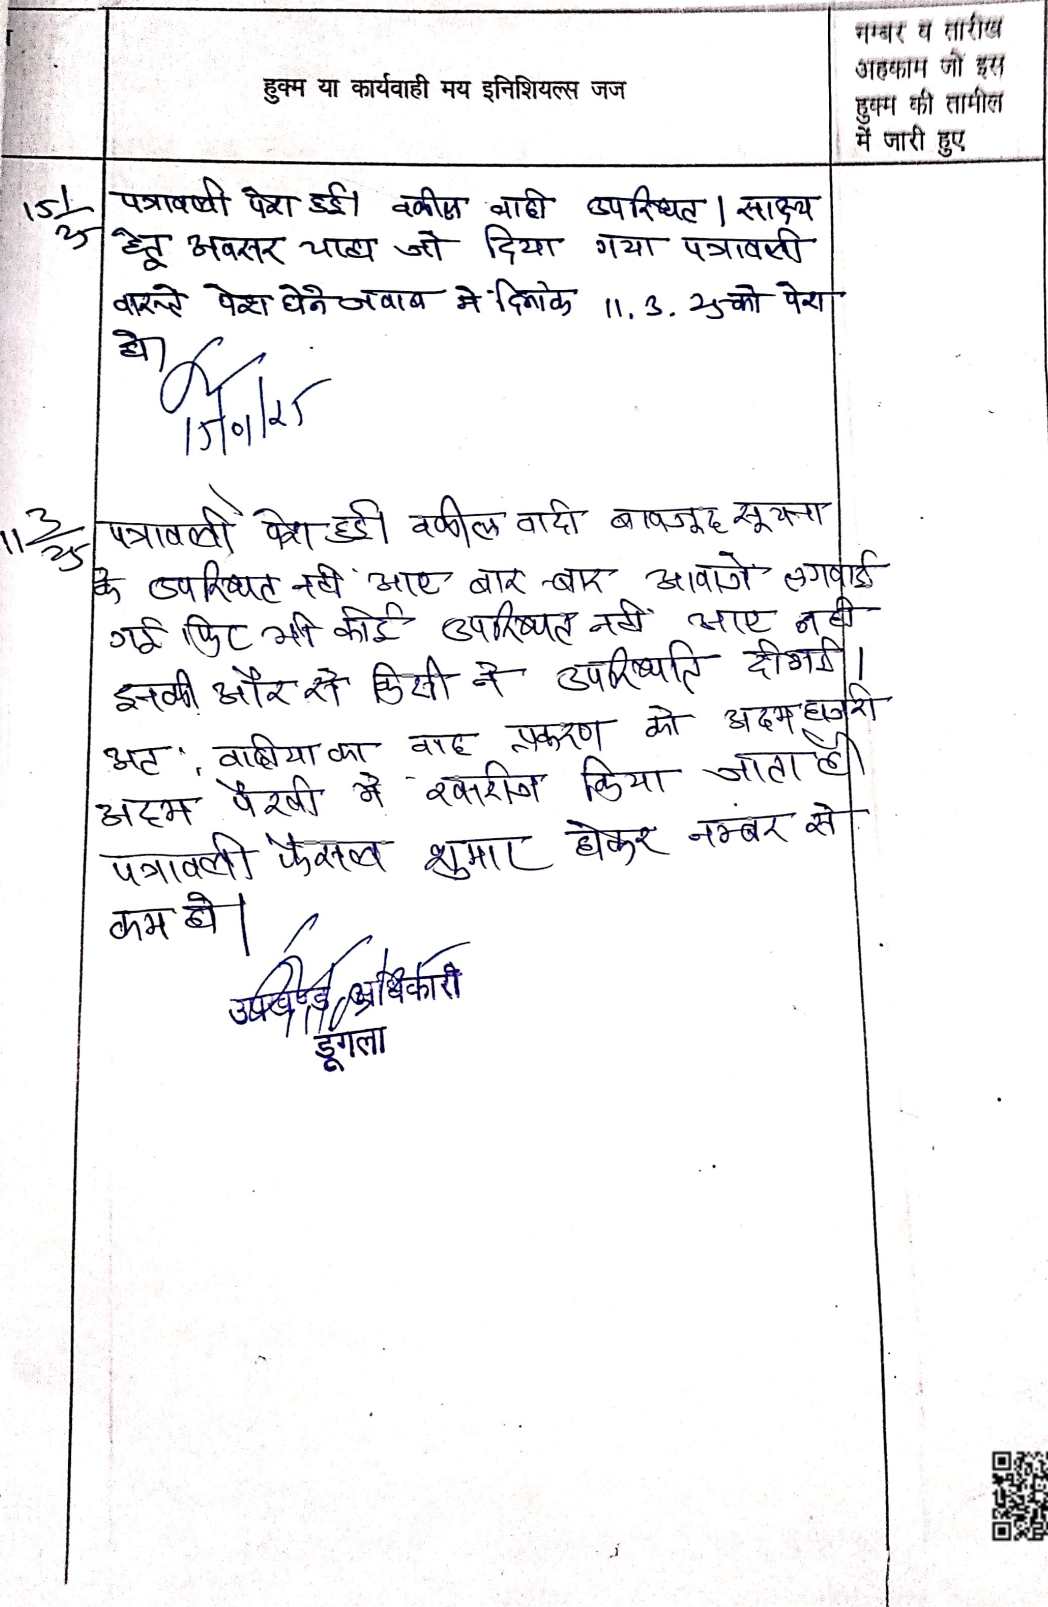 हुक्म या कार्यवाही मय इनिशियल्स जज
नम्बर व तारीख
अहकाम जो इस
हुक्म की तामील
में जारी हुए
15/1/25 पत्रावली पेश हुई। वकील वादी उपस्थित। साक्ष्य
हेतू अवसर चाहा जो दिया गया पत्रावली
वास्ते पेश होने जवाब मे दिनांक 11.3.25 को पेश
हो।
15/01/25
11/3/25 पत्रावली पेश हुई। वकील वादी बावजूद सूचना
के उपस्थित नही आए बार-बार आवाजे लगवाई
गई फिर भी कोई उपस्थित नही आए न ही
इनकी और से किसी ने उपस्थिति दी गई।
अत: वादीया का वाद प्रकरण को अदम हाजरी
अदम पैरवी मे खारीज किया जाता है।
पत्रावली फैसल शुमार होकर नम्बर से
कम हो।
उपखण्ड अधिकारी
डूंगला